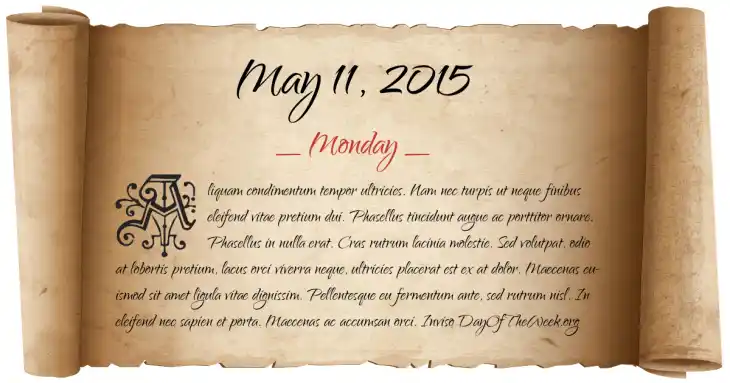 May 11, 2015
_ Monday _
Aliquam condimentum tempor ultricies. Nam nec turpis ut neque finibus
eleifend vitae pretium dui. Phasellus tincidunt augue ac porttitor ornare.
Phasellus in nulla erat. Cras rutrum lacinia molestie. Sed volutpat, odio
at lobortis pretium, lacus orci viverra neque, ultricies placerat est ex at dolor. Maecenas eu-
ismod sit amet ligula vitae dignissim. Pellentesque eu fermentum ante, sed rutrum nisl. In
eleifend nec sapien et porta. Maecenas ac accumsan orci. Inviso DayOfTheWeek.org